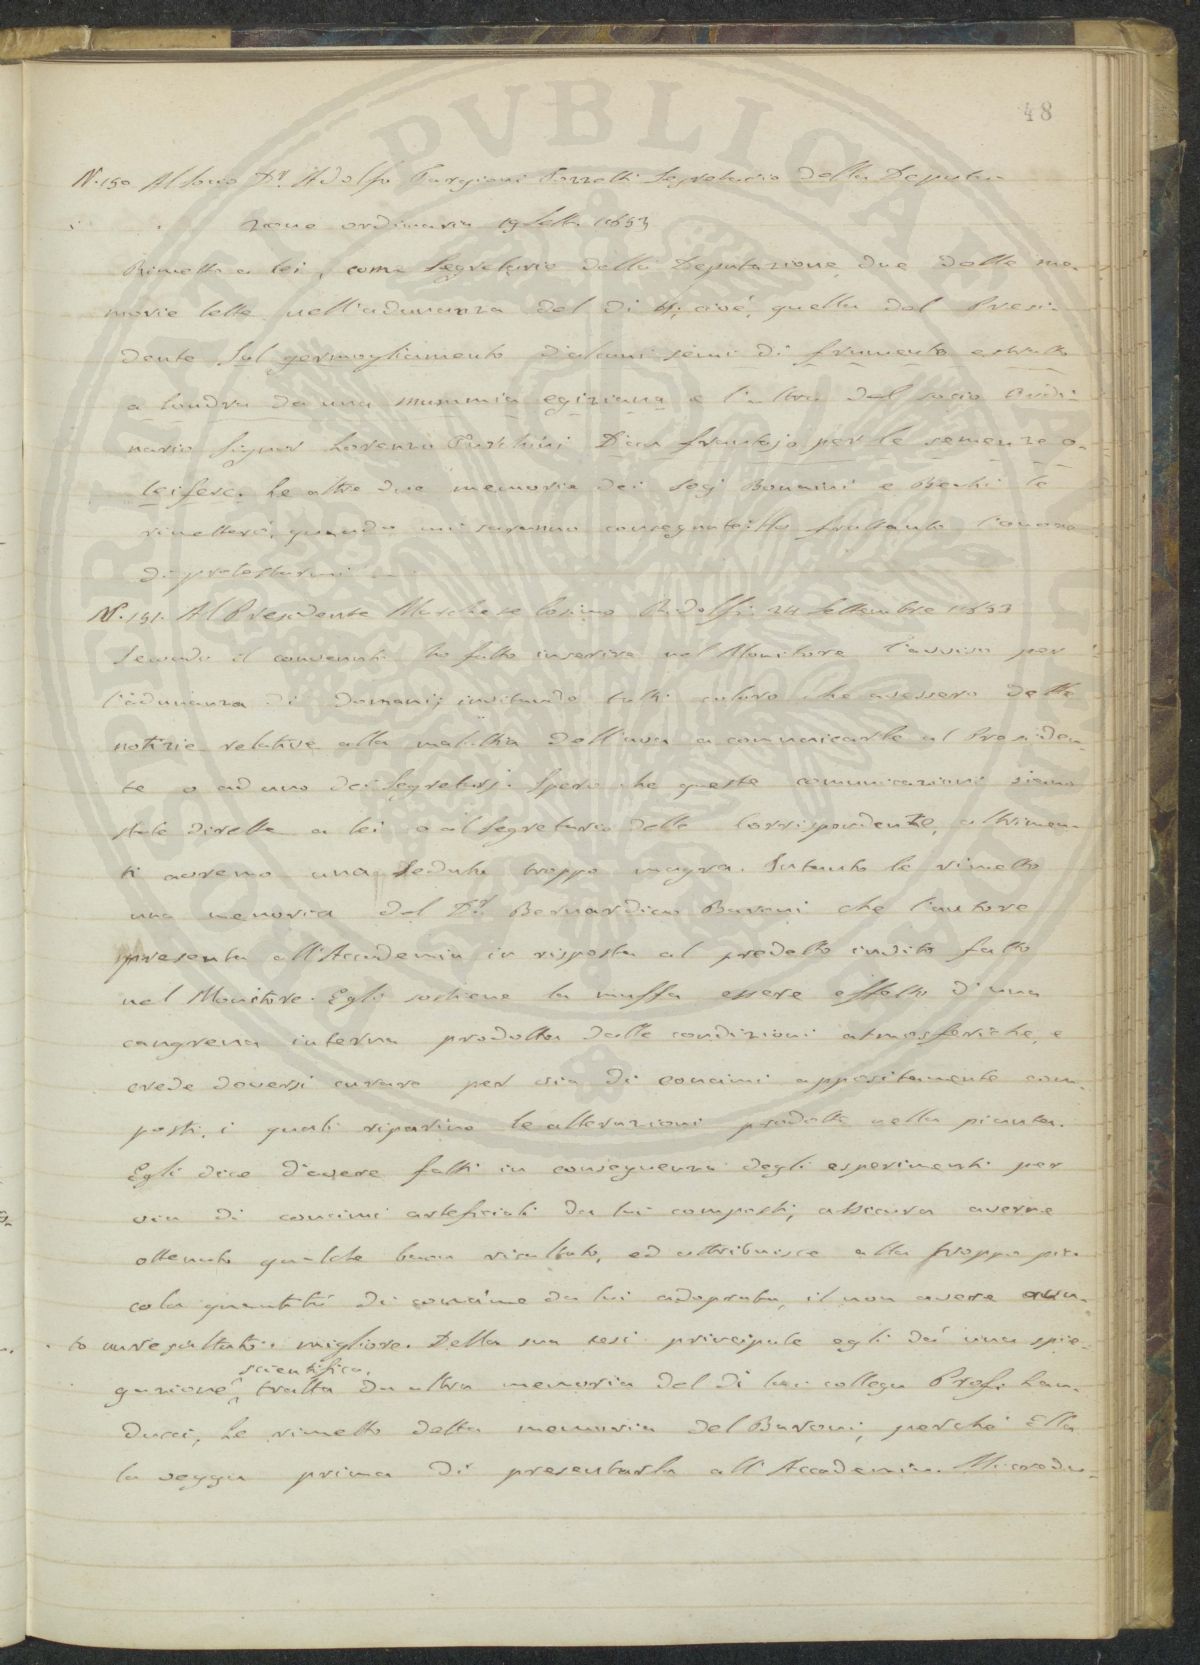 48
N. 150 Al Socio Dr. Adolfo Targioni Tozzetti Segretario della Deputa-
zione ordinaria 19 Sett. 1853
Rimetto a lei, come Segretario della Deputazione, due delle me-
morie lette nell'adunanza del dì 4; cioè, quella del Presi-
dente Sul germogliamento d'alcuni semi di frumento estratto
a Londra da una mummia egiziana e l'altra del socio Ordi-
nario Signor Lorenzo Turchini D'un frantojo per le semenze o-
leifere. Le altre due memorie dei Segj Bonaini e Bechi le
rimetterò, quando mi saranno consegnate. Ho frattanto l'onore
di protestarmi
N. 151. Al Presidente Marchese Cosimo Ridolfi 24 Settembre 1853
Secondo il convenuto ho fatto inserire nel Monitore l'avviso per
l'adunanza di domani; invitando tutti coloro che avessero delle
notizie relative alla malattia dell'uva a comunicarle al Presiden-
te o ad uno dei Segretarj. Spero che queste comunicazioni sieno
state dirette a lei o al Segretario delle Corrispondenze, altrimen-
ti avremo una Seduta troppo magra. Intanto le rimetto
una memoria del Dr. Bernardino Baroni che l'autore
presenta all'Accademia in risposta al predetto invito fatto
nel Monitore. Egli sostiene la muffa essere effetto d'una
cangrena interna prodotta dalle condizioni atmosferiche, e
crede doversi curare per via di concimi appositamente com-
posti, i quali riparino le alterazioni prodotte nella pianta.
Egli dice d'avere fatti in conseguenza degli esperimenti per
via di concimi arteficiali da lui composti, assicura averne
ottenuto qualche buon risultato, ed attribuisce alla troppo pic-
cola quantità di concime da lui adoprata, il non avere avu-
to un resultato migliore. Della sua tesi principale egli dà una spie-
scientifica,
gazione tratta da altra memoria del di lui collega Prof. Lan-
ducci. Le rimetto detta memoria del Baroni, perché Ella
la vegga prima di presentarla all'Accademia. Mi creda